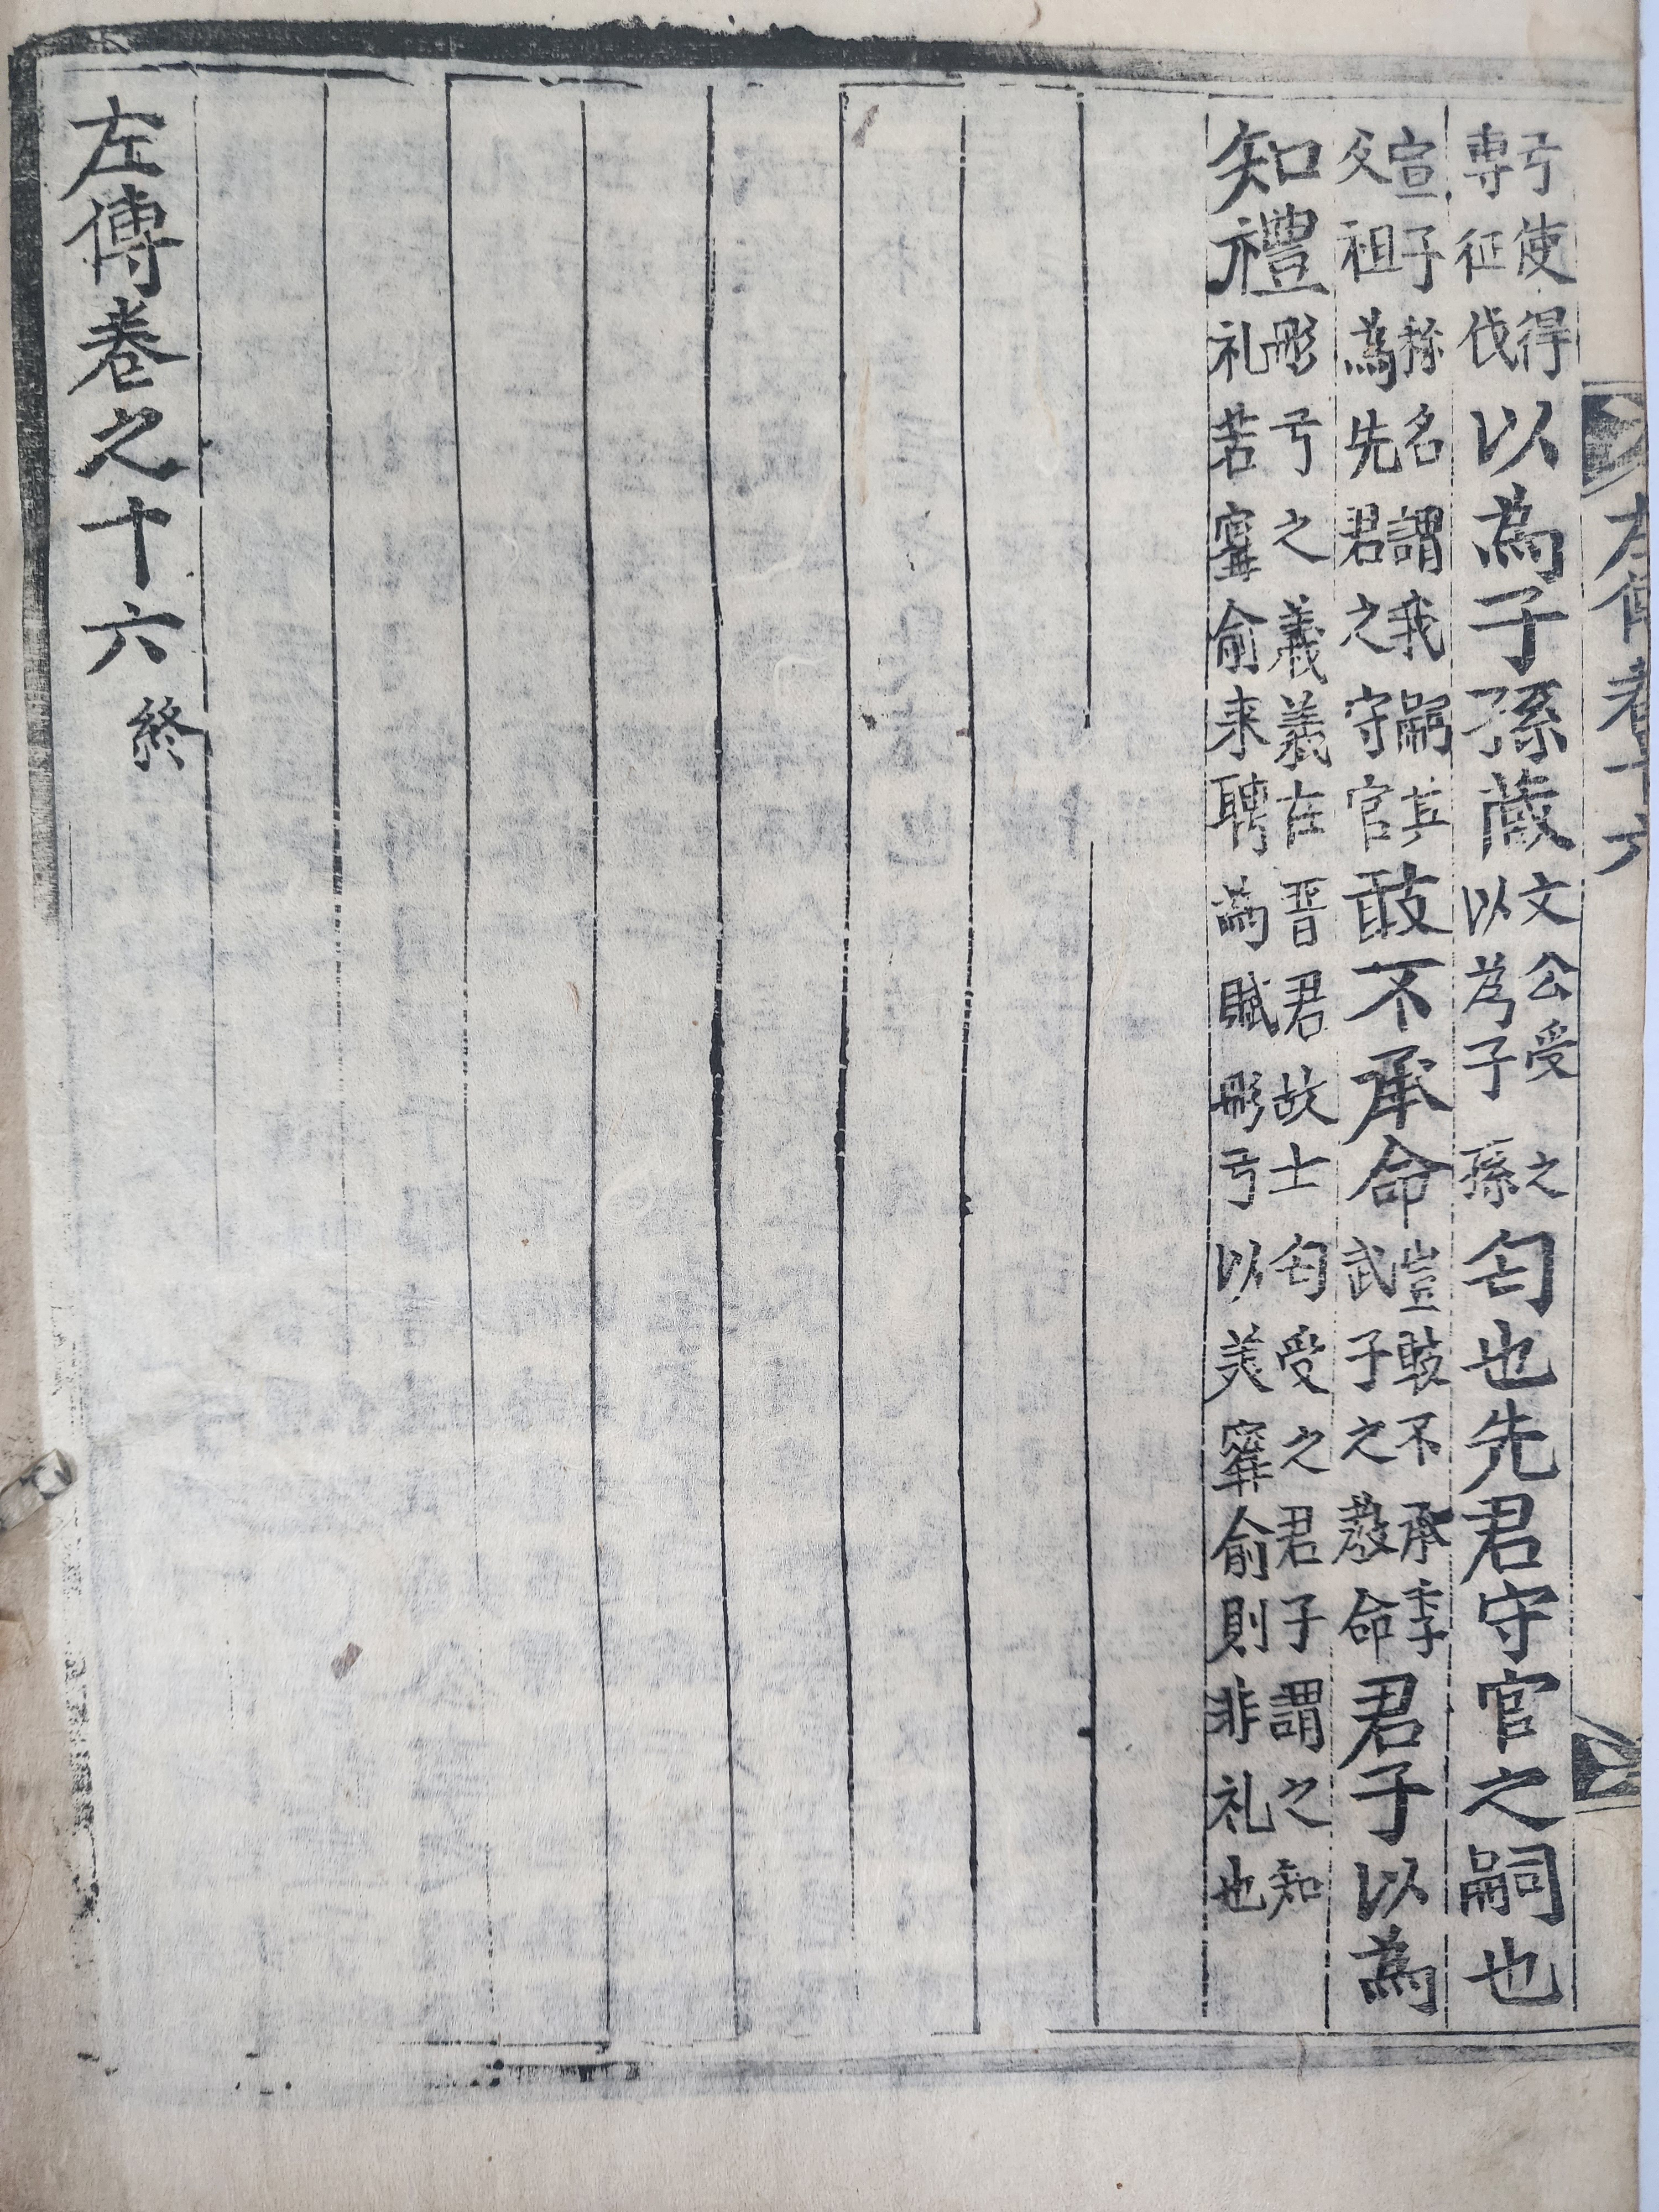 左傳卷十六
弓使得専征伐以為子孫蔵文公受之以為子孫匄也先君守官之嗣也
宣子称名謂我嗣其父祖為先君之守官敢不承命豈敢不承季武子之敎命君子以為
知禮彤弓之義義在晋君故士匄受之君子謂之知礼若甯俞来聘為賦彤弓以美甯俞則非礼也
左傳卷之十六終